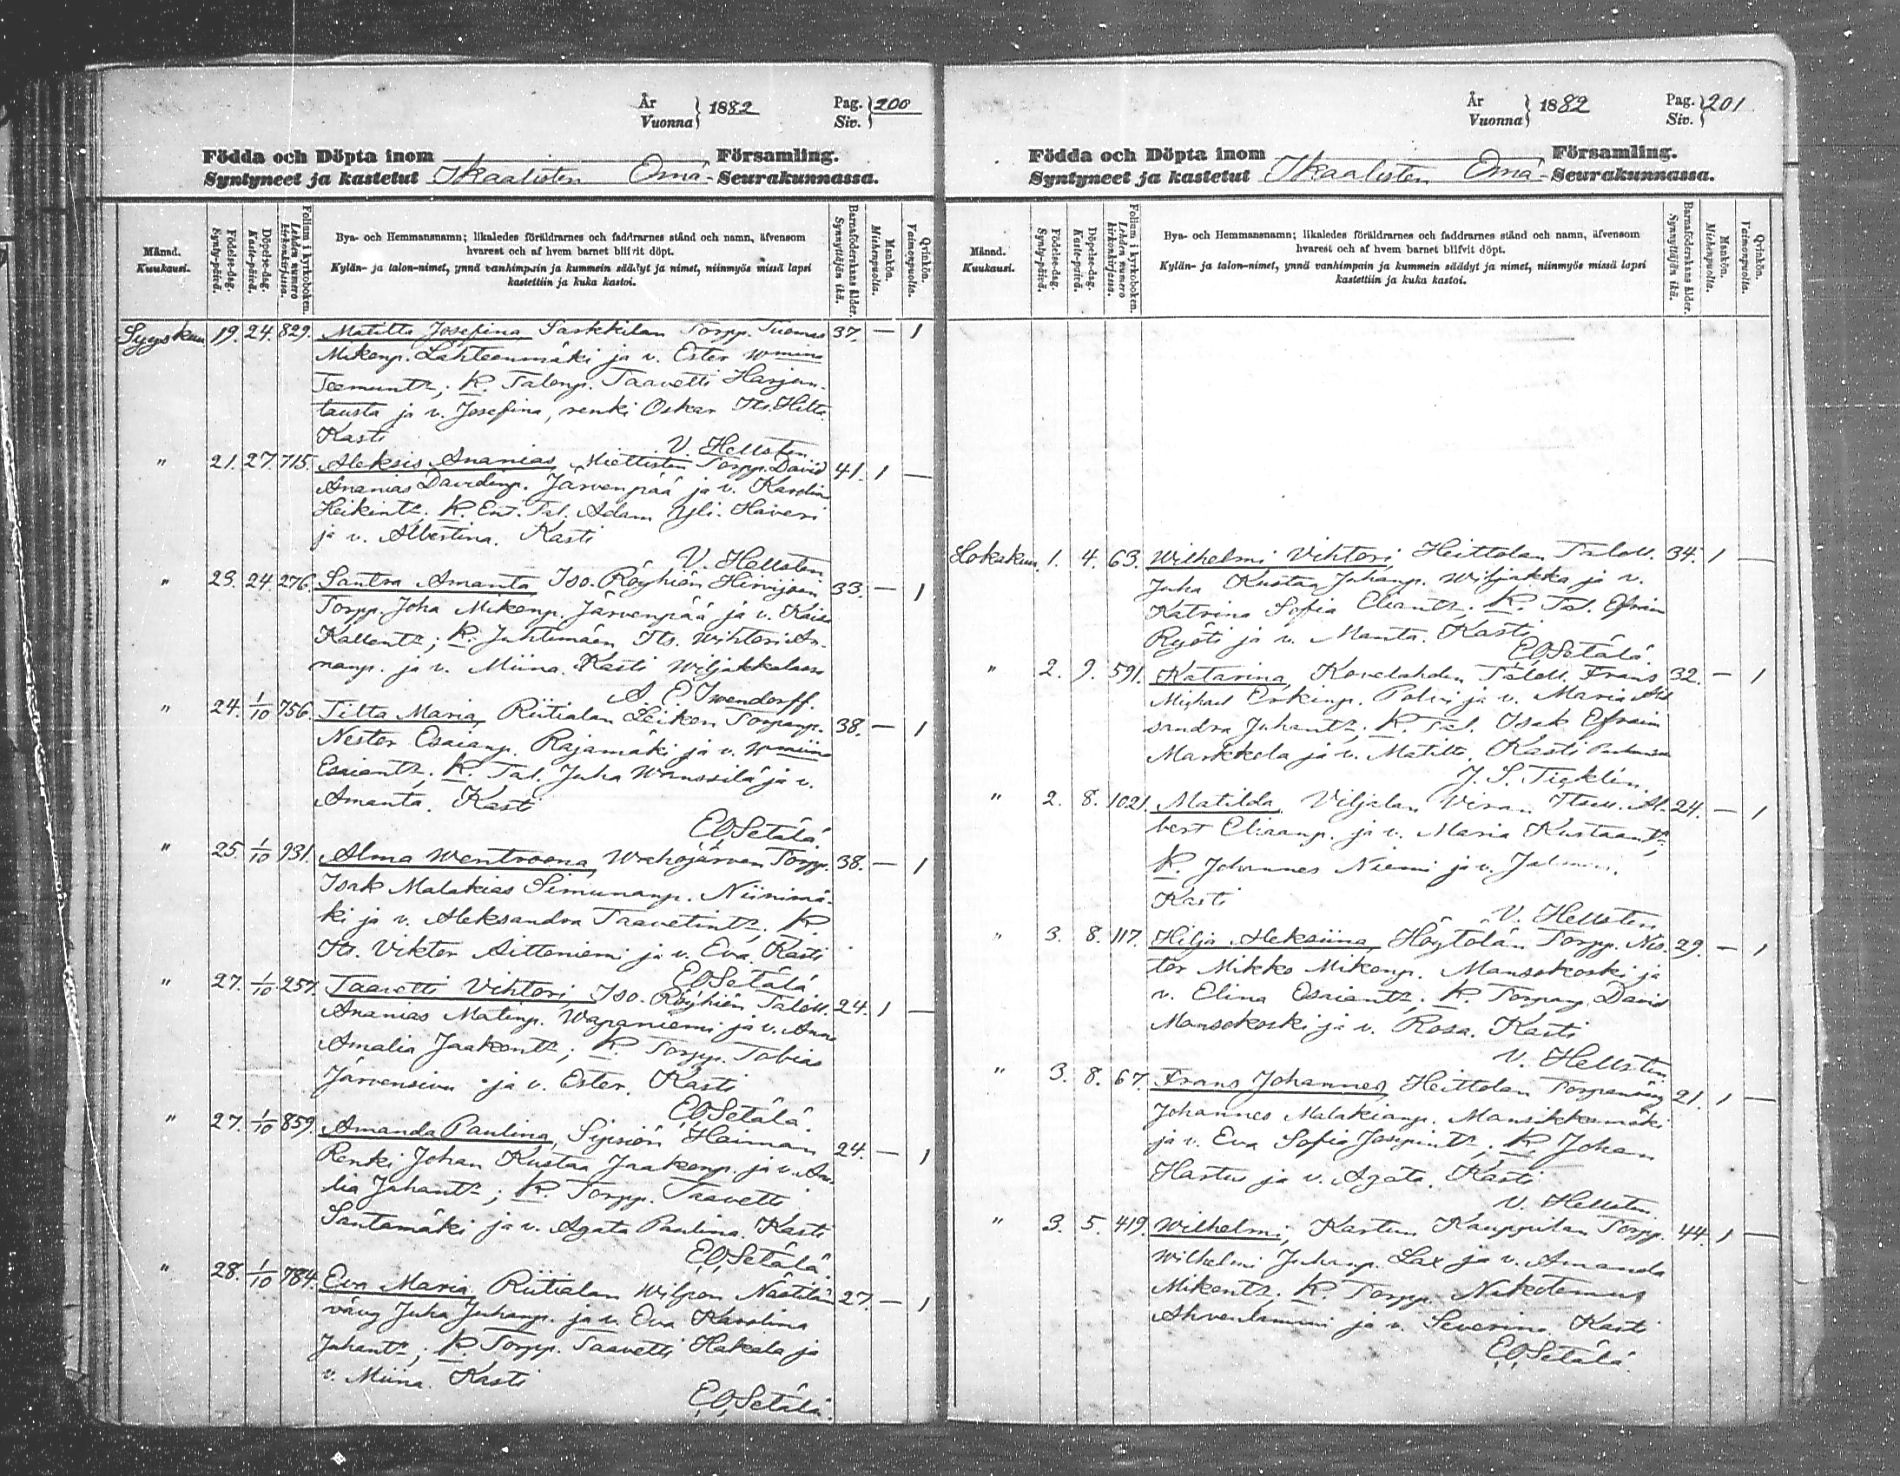 År
Vuonna } 1882
Pag.
Siv. } 200
Födda och Döpta inom Församling.
Syntyneet ja kastetut Ikaalisten Oma- Seurakunnassa.
Månad.
Kuukausi.
Födelse-dag.
Synty-päivä.
Döpelse-dag.
Kaste-päivä.
Folium i kyrkoboken.
Lehden numero kirkonkirjassa.
Bya- och Hemmansnamn; likaledes föräldrarnes och faddrarnes stånd och namn, äfvensom
hvarest och af hvem barnet blifvit döpt.
Kylän- ja talon-nimet, ynnä vanhimpain ja kummein säädyt ja nimet, niinmyös missä lapsi
kastettiin ja kuka kastoi.
Barnaföderskans ålder.
Synnyttäjän ikä.
Mankön.
Miehenpuolia.
Qvinkön.
Vaimonpuolia.
Syyskuu 19. 24. 829. Matilta Josefina Sarkkilan Torpp. Tuomas 37. — 1
Mikenp. Lähteenmäki ja v. Ester Wmiina
Teemuntr; K. Talonp. Taavetti Harjun-
tausta ja v. Josefina, renki Oskar Its. Hilta
Kasti
V. Hellsten.
" 21. 27. 715. Aleksis Ananias, Miettisten Torpp. David 41. 1 —
Ananias Davidinp. Järvenpää ja v. Karolina
Heikintr. K. Ent. Tal. Adam Yli-Haveri
ja v. Albertina. Kasti
V. Hellsten
" 23. 24. 276. Santra Amanta Iso-Röyhiön Hirvijoen 33. — 1
Torpp. Joha Mikenp. Järvenpää ja v. Kaisa
Kallentr; K. Juhtimäen Its. Wihtori An-
nanp. ja v. Miina. Kasti Wiljakkalassa
A. E. Iwendorff.
" 24. 1/10 756. Tilta Maria, Riitialan Leikon Torpanp. 38. — 1
Nestor Esaianp. Rajamäki ja v. Wmiina
Esaientr. K. Tal. Juha Wanssilä ja v.
Amanta. Kasti
EOSetälä.
" 25. 1/10 931. Alma Wentroona, Wahojärven Torpp. 38. — 1
Isak Malakias Simunanp. Niinimä-
ki ja v. Aleksandra Taavetintr. K.
Its. Viktor Sitteniemi ja v. Eva. Kasti
EOSetälä
" 27. 1/10 257. Taavetti Vihtori, Iso-Röyhiön Taloll. 24. 1 —
Ananias Matinp. Wapaniemi ja v. Anna
Amalia Jaakontr; K. Torpp. Tobias
Järvensivu ja v. Ester. Kasti
EOSetälä.
" 27. 1/10 859. Amanda Paulina, Sipsiön Haiman 24. — 1
Renki Johan Kustaa Jaakonp. ja v. Ama-
lia Juhantr; K. Torpp. Taavetti
Santamäki ja v. Agata Paulina. Kasti
EOSetälä.
" 28. 1/10 784. Eva Maria, Riitialan Wilpon Näätilä 27. — 1
vävy Juha Juhanp. ja v. Eva Karolina
Juhantr; K. Torpp. Taavetti Hakala ja
v. Miina. Kasti
EOSetälä.
År
Vuonna } 1882
Pag.
Siv. } 201
Födda och Döpta inom Församling.
Syntyneet ja kastetut Ikaalisten Oma- Seurakunnassa.
Månad.
Kuukausi.
Födelse-dag.
Synty-päivä.
Döpelse-dag.
Kaste-päivä.
Folium i kyrkoboken.
Lehden numero kirkonkirjassa.
Bya- och Hemmansnamn; likaledes föräldrarnes och faddrarnes stånd och namn, äfvensom
hvarest och af hvem barnet blifvit döpt.
Kylän- ja talon-nimet, ynnä vanhimpain ja kummein säädyt ja nimet, niinmyös missä lapsi
kastettiin ja kuka kastoi.
Barnaföderskans ålder.
Synnyttäjän ikä.
Mankön.
Miehenpuolia.
Qvinkön.
Vaimonpuolia.
Lokakuu 1. 4. 63. Wilhelmi Vihtori, Heittolan Taloll. 34. 1 —
Juha Kustaa Juhanp. Wiljakka ja v.
Katrina Sofia Eliantr. K. Tal. Efraim
Ryösti ja v. Manta. Kasti
EOSetälä.
" 2. 9. 591. Katarina, Kovelahden Taloll. Frans 32. — 1
Michael Erkinp. Polvi ja v. Maria Alek
sandra Juhantr. K. Tal. Isak Efraim
Markkola ja v. Matilta. Kasti
J. S. Ticklén.
" 2. 8. 1021. Matilda, Viljalan Wiran Itsell. Al- 24. — 1
bert Elianp. ja v. Maria Kustaantr,
K. Johannes Niemi ja v.
Kasti
V. Hellsten
" 3. 8. 117. Hilja Aleksiina, Höytölän Torpp. Nes- 29. — 1
tor Mikko Mikenp. Mansokoski ja
v. Elina Esaientr. K. Torpanp. David
Mansokoski ja v. Rosa. Kasti
V. Hellsten
" 3. 8. 67. Frans Johannes, Heittolan Torpanvävy 21. 1 —
Johannes Malakianp. Mansikkamäki
ja v. Eva Sofia Josepintr; K. Johan
Hartus ja v. Agata. Kasti
V. Hellsten.
" 3. 5. 419. Wilhelmi, Kartun Kauppilan Torpp. 44. 1 —
Wilhelmi Juhanp. Lax ja v. Amanda
Mikentr. K. Torpp. Nikotemus
Ahvenlammi ja v. Severina. Kasti
EOSetälä.